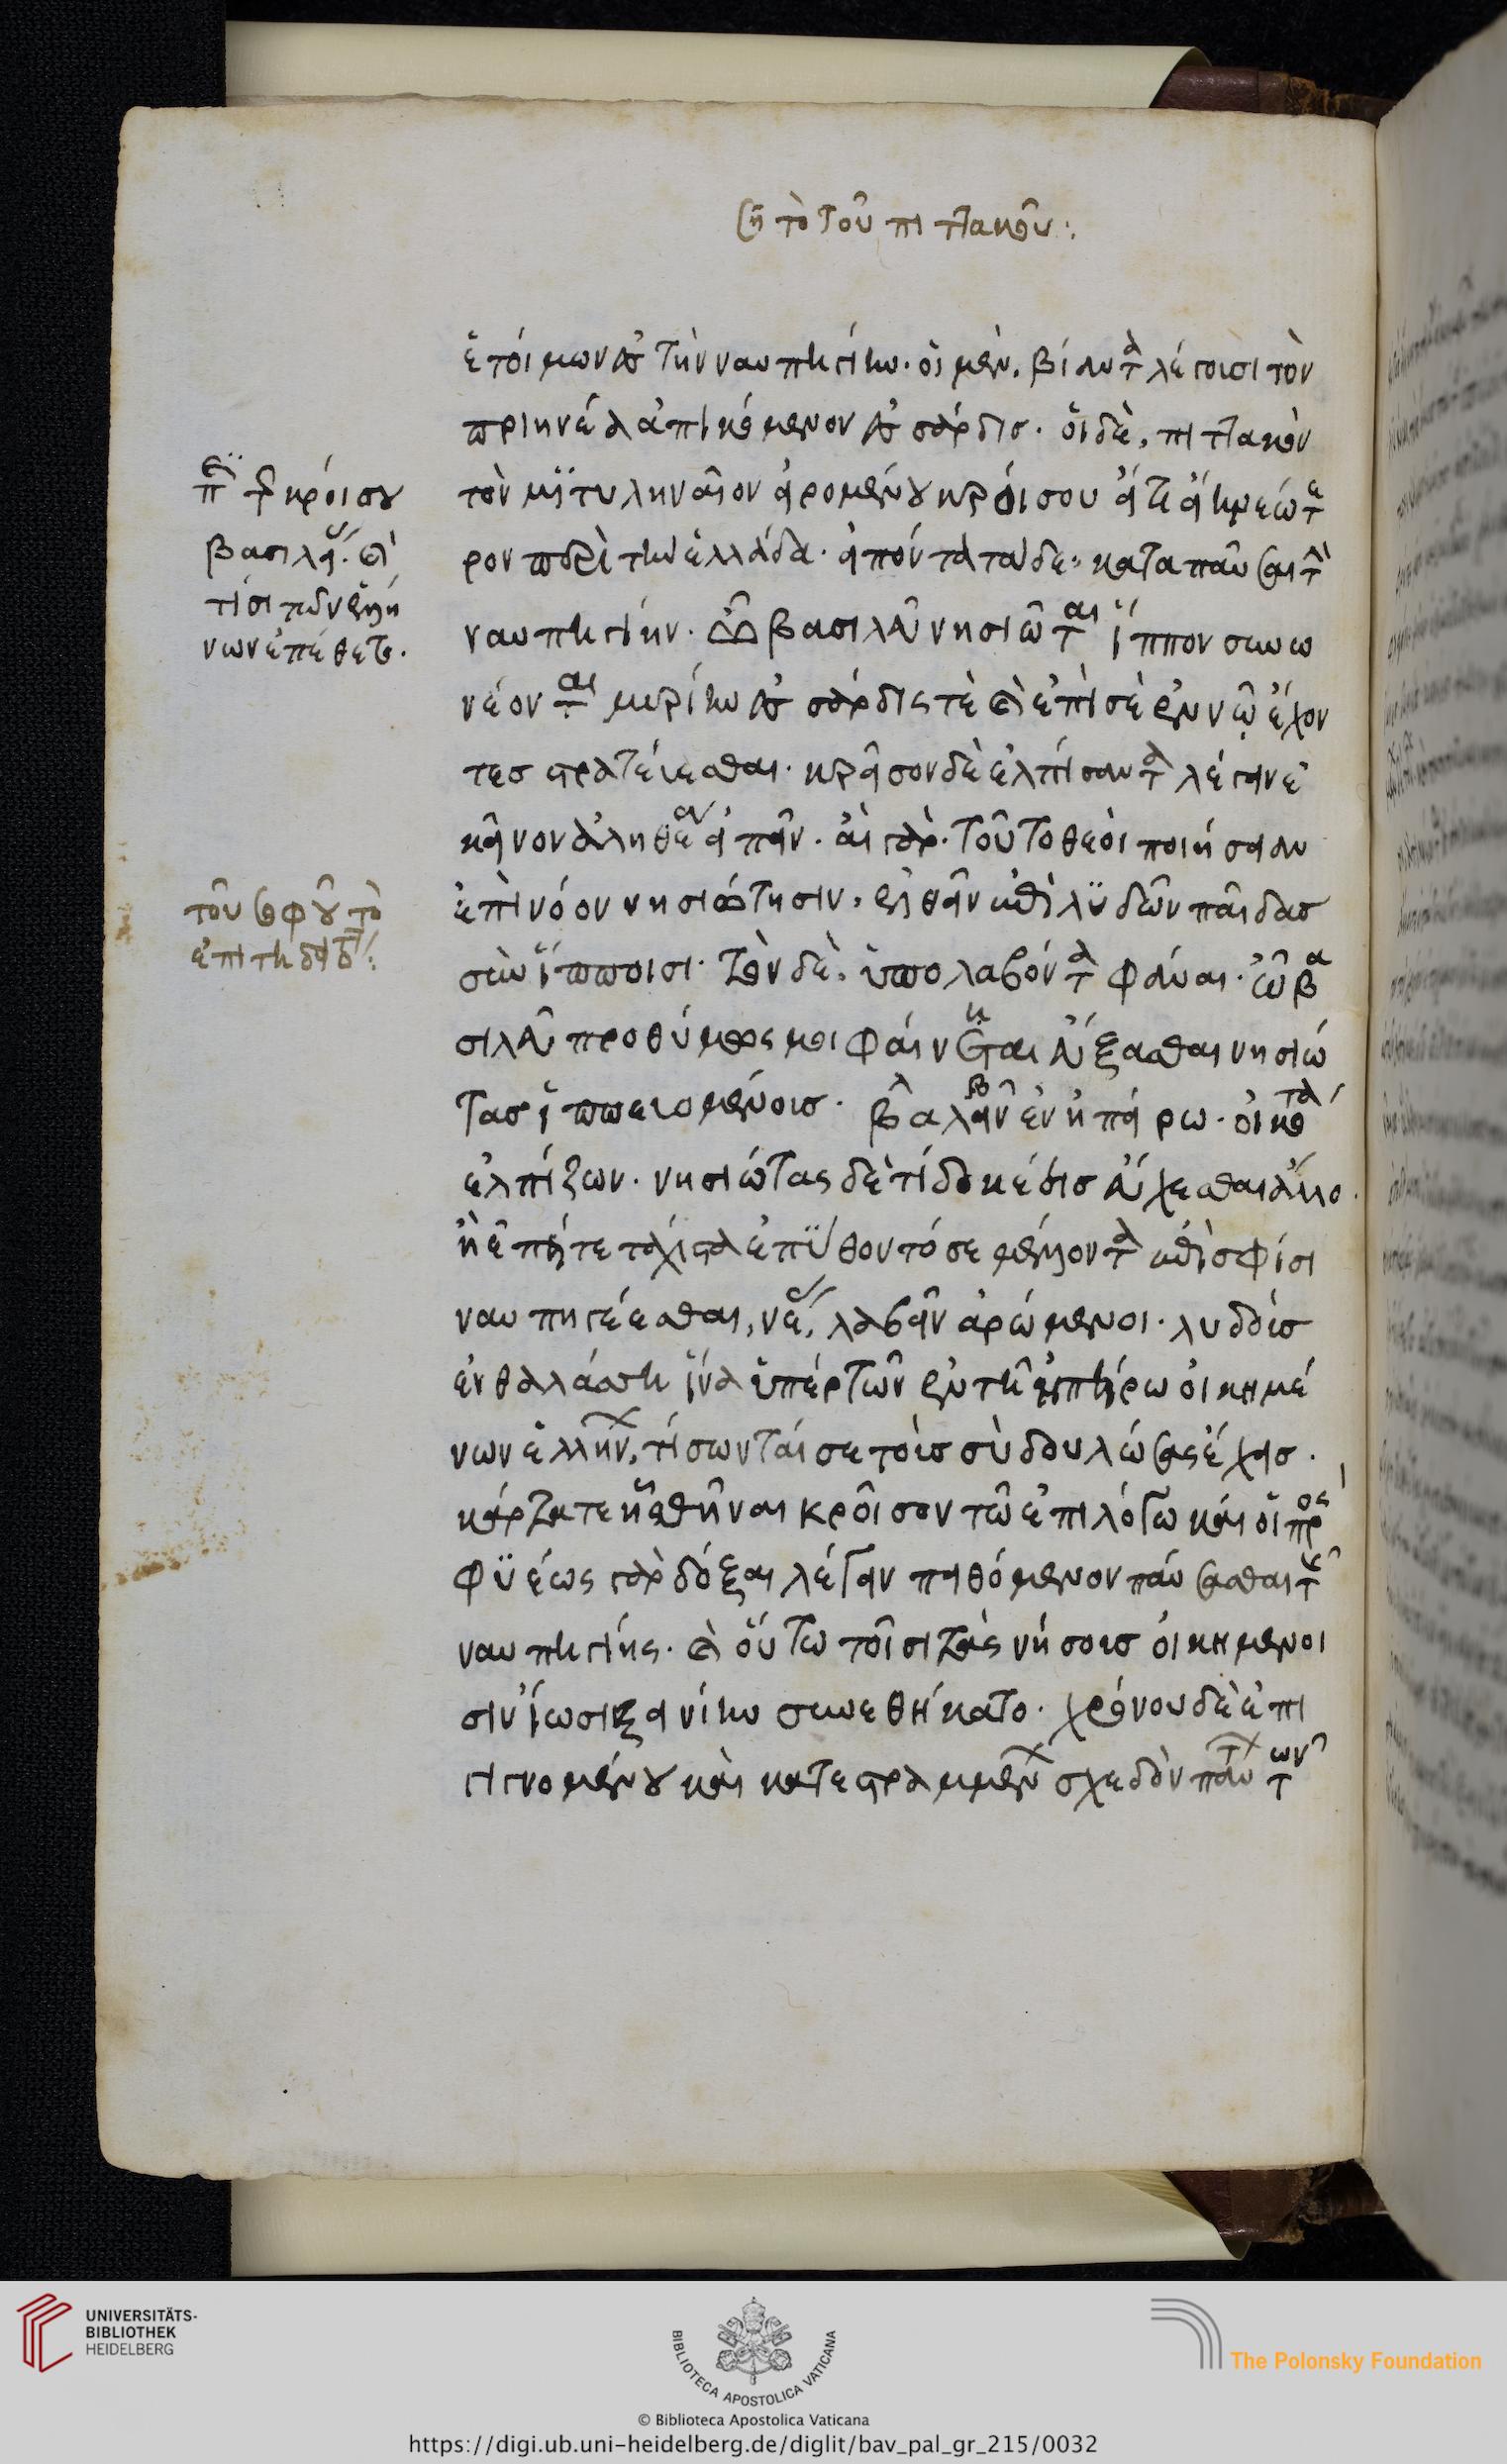 ση τὸ τοῦ πιττακοῦ:
ἑτοίμων ἐς τὴν ναυπηγίην. οἱ μὲν, βίαντα λέγουσι τὸν
πριηνέα ἀπικόμενον ἐς σάρδις. οἱ δὲ, πιττακὸν
τὸν μϊτυληναῖον εἰρομένου κροίσου εἴ τι εἴη νεώτε
ρον περὶ τὴν ἑλλάδα. εἰπόντα τάδε. καταπαῦσαι τὴν
ναυπηγίην. ὦ βασιλεῦ νησιῶται ἵππον συνω
νέονται μυρίην ἐς σάρδις τὲ καὶ ἐπὶ σὲ ἐν νῷ ἔχον
τες στρατεύεσθαι. κροῖσον δὲ ἐλπίσαντα λέγειν ἐ
κεῖνον ἀληθέα εἰπεῖν. αἲ γὰρ. τοῦτο θεοὶ ποιήσειαν
ἐπὶ νόον νησιώτησιν. ἐλθεῖν ἐπὶ λϋδῶν παῖδας
σὺν ἵπποισι. τὸν δὲ. ὑπολαβόντα φάναι. ὦ βα
σιλεῦ προθύμως μοι φαίνεαι εὔξασθαι νησιώ
τας ἱππευομένους. λαβεῖν ἐν ἠπείρω. οἰκότα
ἐλπίζων. νησιώτας δὲ τί δοκέεις εὔχεσθαι ἄλλο.
ἢ ἐπεί τε τάχιστα ἐπΰθοντό σε μέλλοντα ἐπὶ σφίσι
ναυπηγέεσθαι, νέας, λαβεῖν ἀρώμενοι. λυδοὺς
ἐν θαλάσση ἵνα ὑπὲρ τῶν ἐν τῆ ἠπείρω οἰκημέ
νων ἑλλήνων, τίσωνταί σε τοὺς σὺ δουλώσας ἔχεις.
κάρτα τε ἡσθῆναι κροῖσον τῶ ἐπιλόγω καί οἱ προς
φϋέως γὰρ δόξαι λέγειν πειθόμενον παύσασθαι τῆς
ναυπηγίης. καὶ οὕτω τοῖσι τὰς νήσους οἰκημένοι
σιν ἴωσι ξεινίην συνεθήκατο. χρόνου δὲ ἐπι
γινομένου καὶ κατεστραμμένων σχεδὸν πάντων τῶν
ἐπὶ τοῦ κροίσου
βασιλέως. καὶ
τίσι τῶν ἑλλή
νων ἐπέθετο.
τοῦ σοφοῦ τὸ